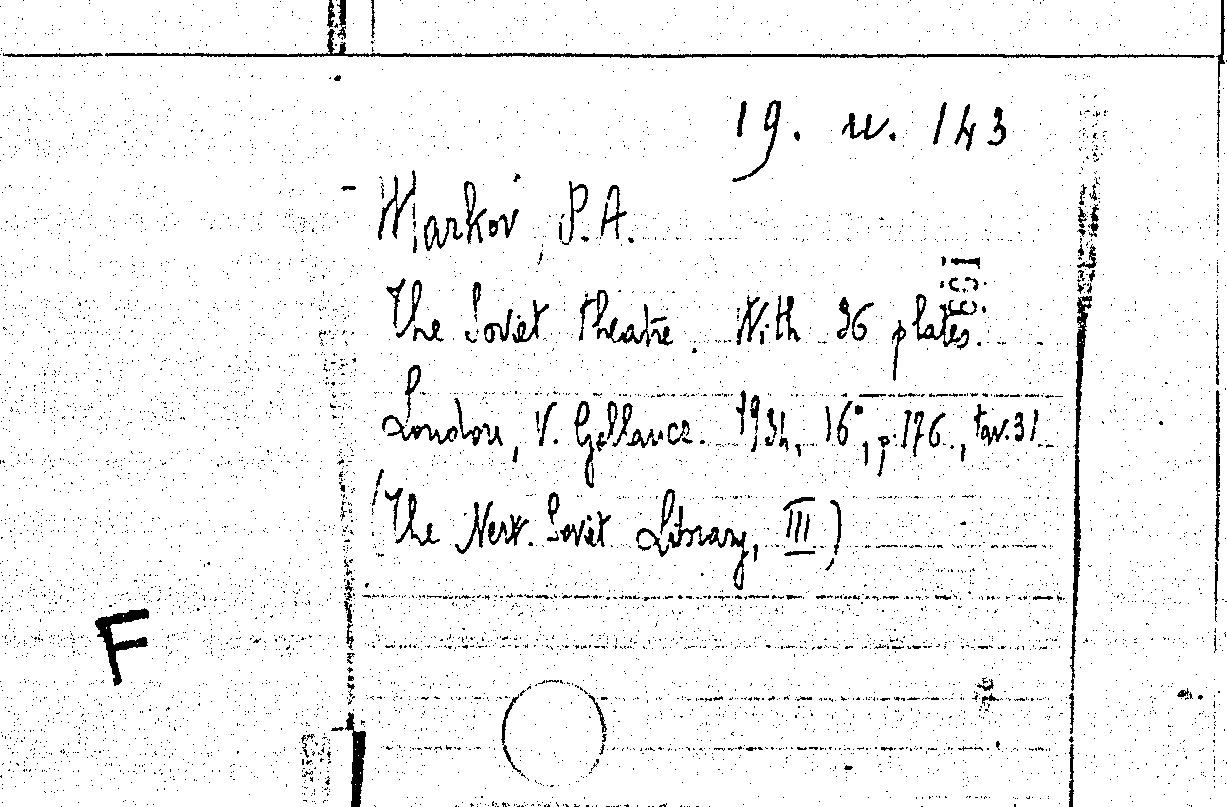 19. u. 143
Markov, P.A.
The Soviet Theatre. With 36 plates.
London, V. Gollancz. 1934, 16°, p. 176., tav. 31
(The New. Soviet Library, III)
F